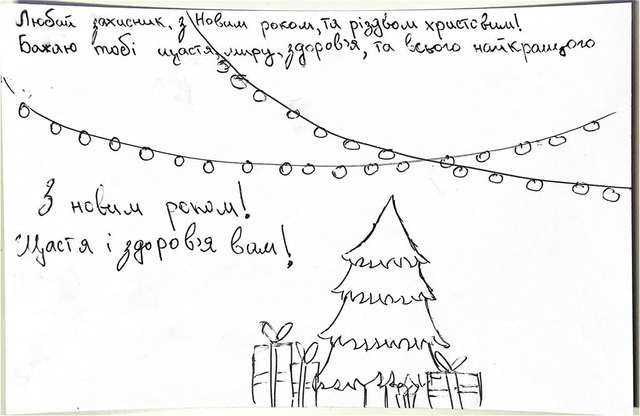 Любий захисник, з Новим роком, та різдвом христовим!
Бажаю тобі щастя, миру, здоров'я, та всього найкращого
З новим роком!
Щастя і здоров'я вам!